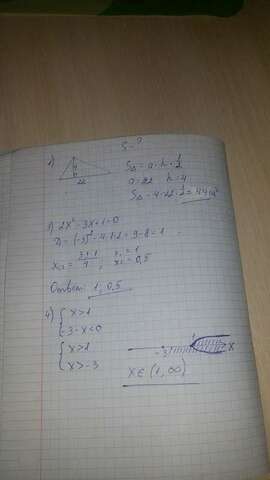 S - ?
2)
4
22
S△ = a · h · 1/2
a = 22 h = 4
S△ = 4 · 22 · 1/2 = 44
3) 2x² - 3x + 1 = 0
D = (-3)² - 4 · 1 · 2 = 9 - 8 = 1
x₁ = 1
x₂ = 0,5
Ответ: 1, 0,5
4) { x > 1
-3 - x < 0
{ x > 1
x > -3
-3 1 x
x ∈ (1, ∞)